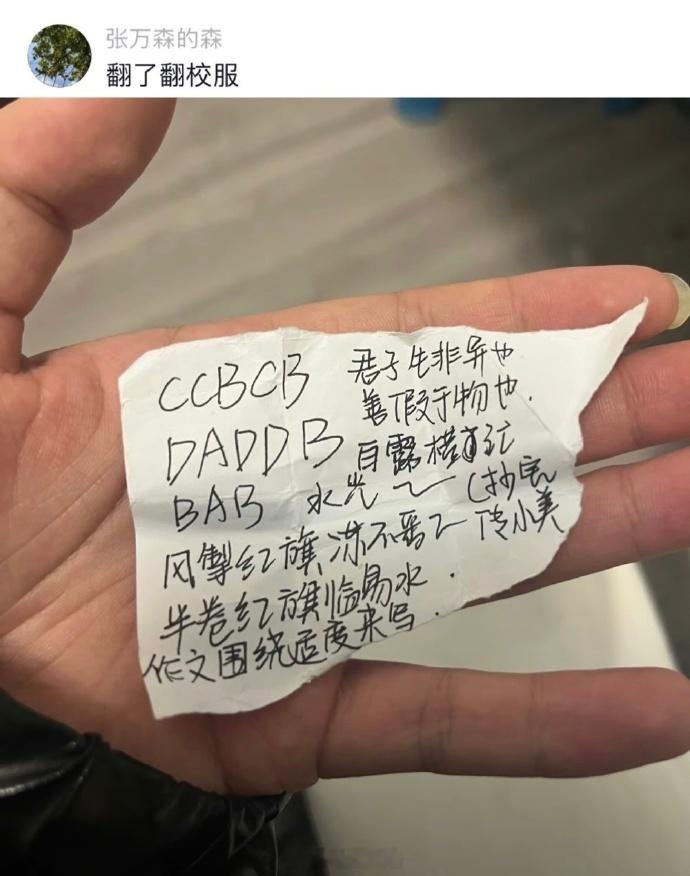 张万森的森
翻了翻校服
CCBCB 君子生非异也
善假于物也.
DADDB 白露横江
BAB 水光~ (抄完
风掣红旗冻不翻~ 传小美
半卷红旗临易水.
作文围绕适度来写.